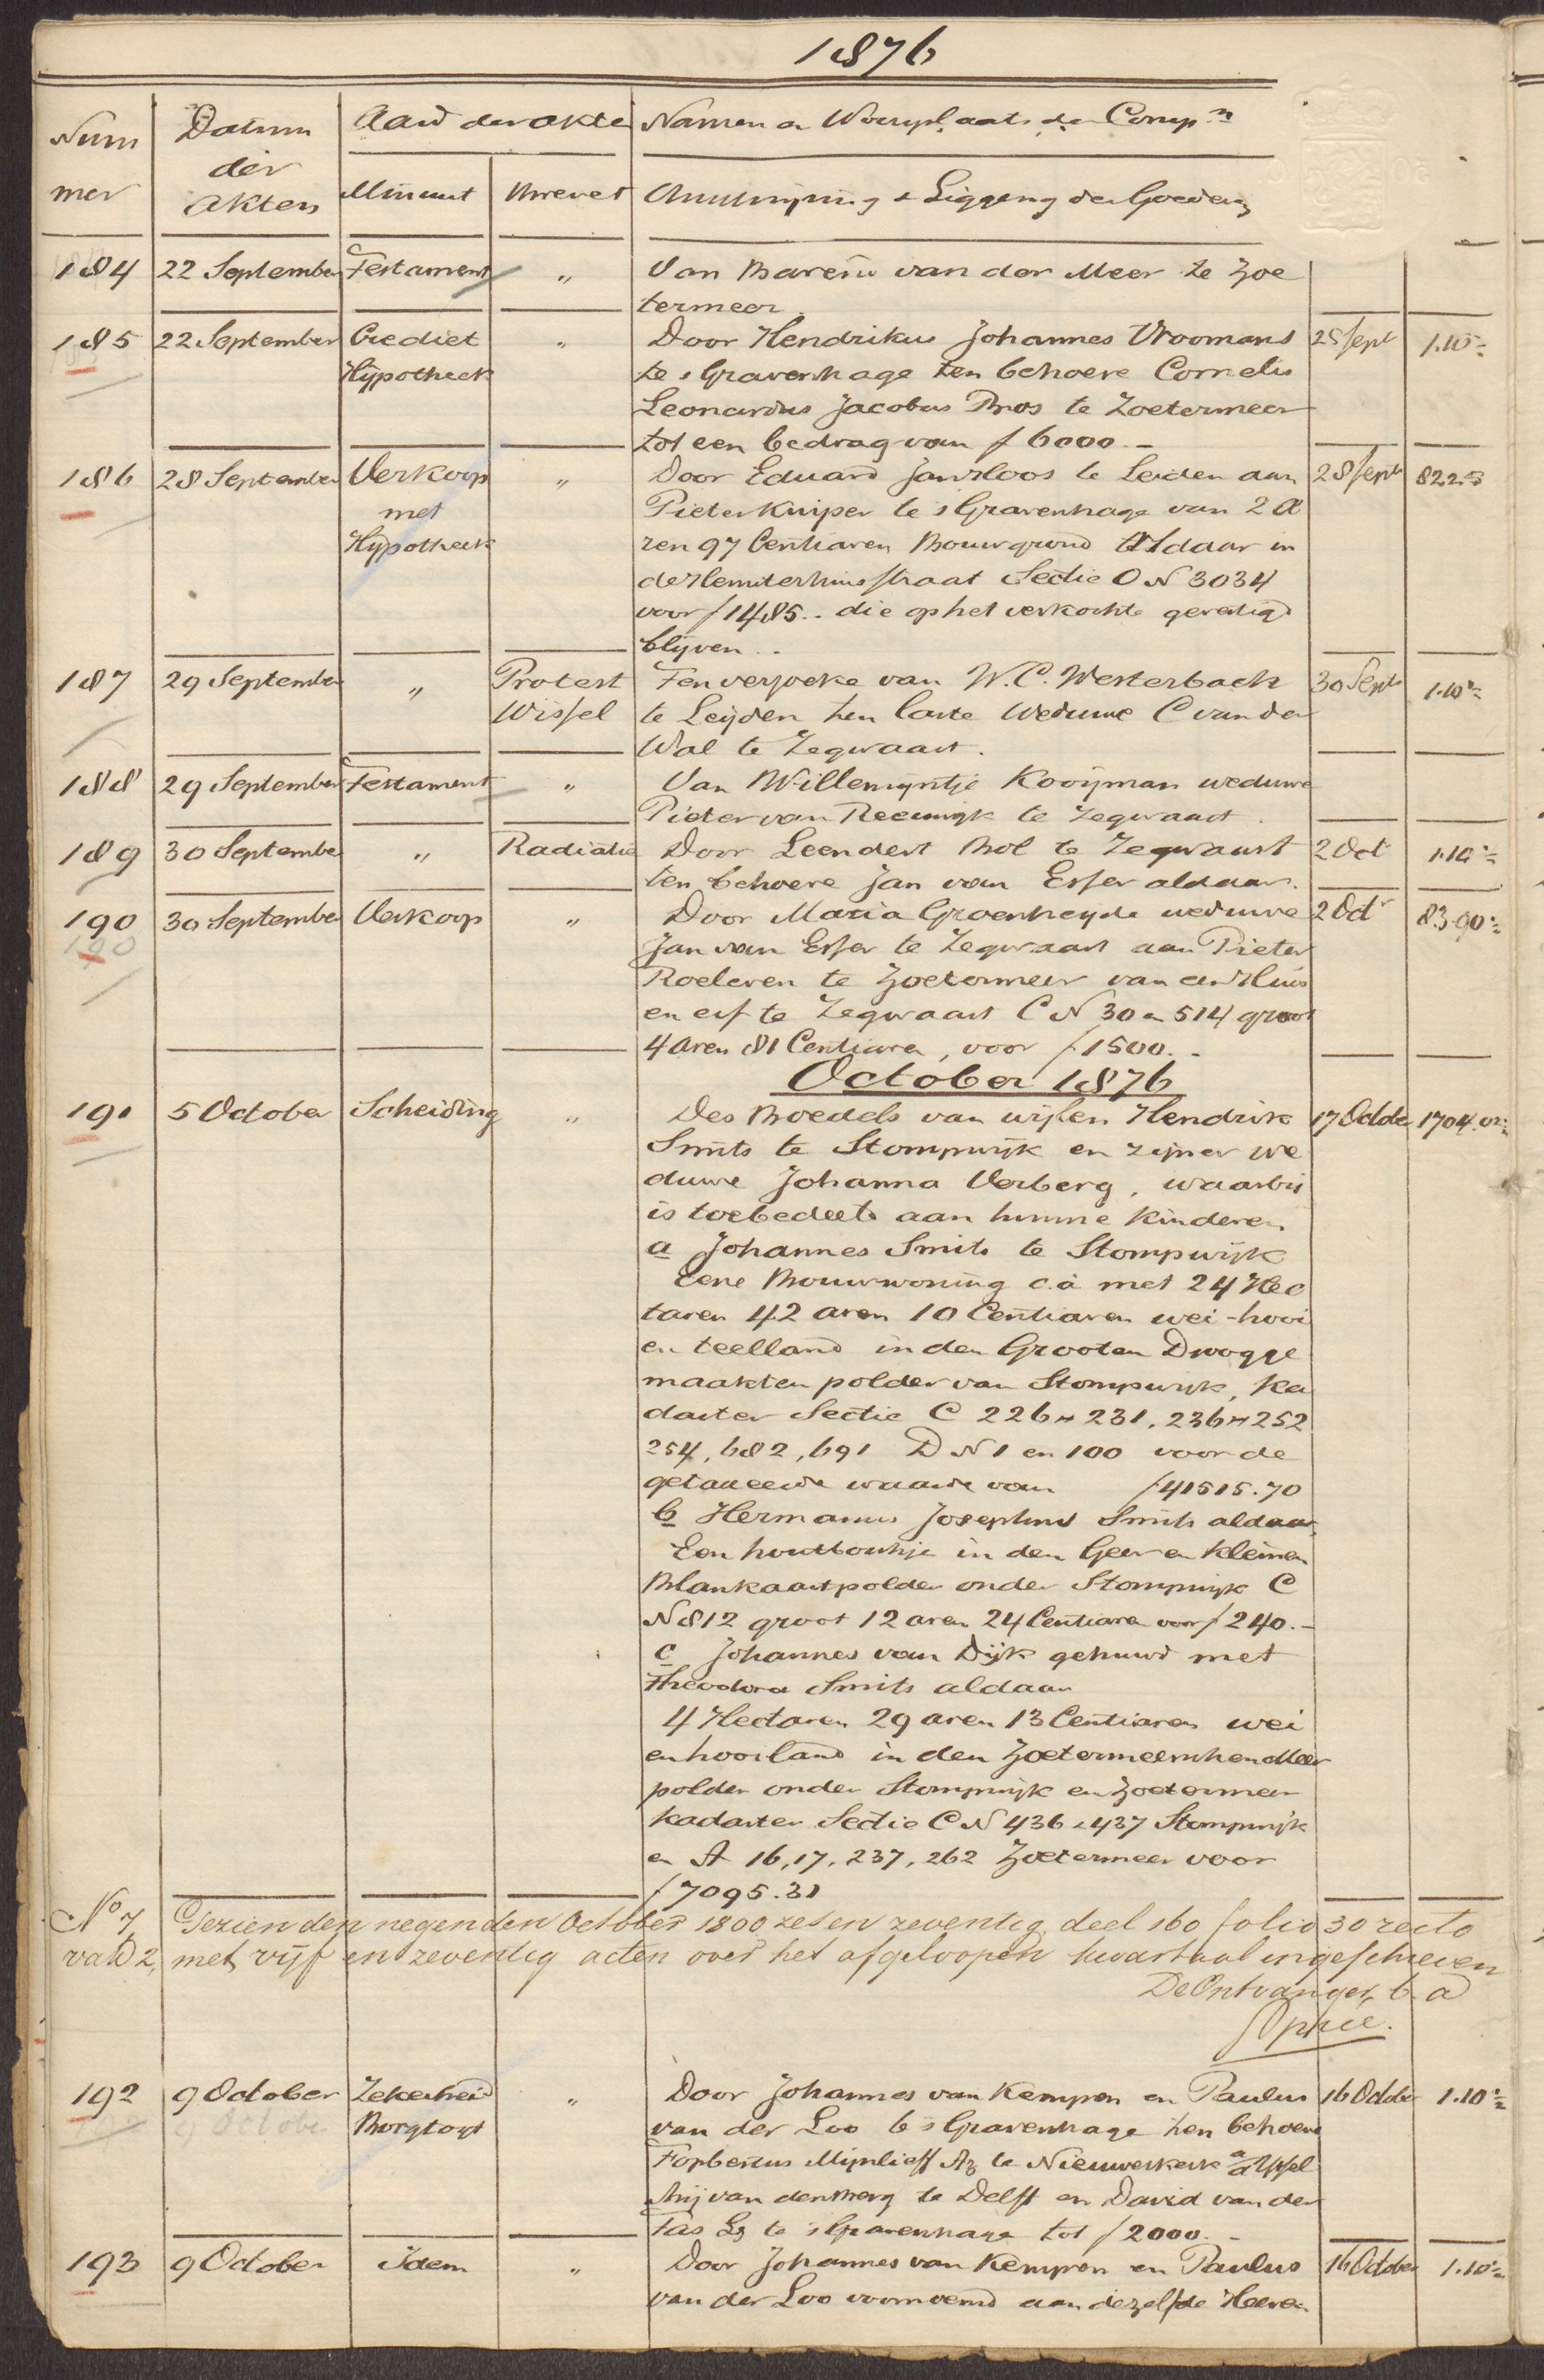 1876
Num Datum Aard der akte Namen en Woonplaats der Comp.n
der
mer akten Minuut Brevet Omschrijving & Ligging der Goederen
184 22 September Testament „ Van Barend van der Meer te Zoe
termeer
185 22 September Crediet „ Door Hendrikus Johannes Vroomans 25 Sept 1.10
Hypotheek te s Gravenhage ten behoeve Cornelis
Leonardus Jacobus Bos te Zoetermeer
tot een bedrag van f 6000.-
186 28 September Verkoop „ Door Eduard Jan Kloos te Leiden aan 28 Sept 82.25
met Pieter Kuiper te s Gravenhage van 2 A
Hypotheek ren 97 Centiaren Bouwgrond Aldaar in
de Hemsterhuisstraat Sectie O N 3034
voor f 1485.. die op het verkochte gevestigd
blijven..
187 29 September „ Protest Ten verzoeke van W.C. Westerbaek 30 Sept 1.10
Wissel te Leijden ten laste Weduwe C van der
Wal te Zegwaart.
188 29 September Testament „ Van Willemijntje Kooijman weduwe
Pieter van Reeuwijk te Zegwaart.
189 30 September „ Radiatie Door Leendert Bol te Zegwaart 2 Oct 1.10
ten behoeve Jan van Esser aldaar.
190 30 September Verkoop „ Door Maria Groenheyde weduwe 2 Oct 83.90
190 Jan van Esser te Zegwaart aan Pieter
Roeleven te Zoetermeer van een Huis
en erf te Zegwaart C N 30 en 514 groot
4 aren 81 Centiaren, voor f 1500.-
October 1876
191 5 October Scheiding „ Des Boedels van wijlen Hendrik 17 October 1704.02
Smits te Stompwijk en zijner we
duwe Johanna Verberg, waarbij
is toebedeeld aan hunne kinderen
a Johannes Smits te Stompwijk
Eene Bouwwoning c.a met 24 Hec
taren 42 aren 10 Centiaren wei-hooi
en teelland in den Grooten Drogge
maakten polder van Stompwijk, Ka
daster Sectie C 226 231, 236 252
254, 682, 691 D N 1 en 100 voor de
getaxeerde waarde van f 41515.70
b Hermanus Josephus Smits aldaar,
Een houtboschje in den Geer en Kleinen
Blankaartpolder onder Stompwijk C
N 812 groot 12 aren 24 Centiaren voor f 240.-
c Johannes van Dijk gehuwd met
Theodora Smits aldaar
4 Hectaren 29 aren 13 Centiaren wei
en hooiland in den Zoetermeerschen Meer
polder onder Stompwijk en Zoetermeer
Kadaster Sectie C N 436 & 437 Stompwijk
en A 16, 17, 237, 262 Zoetermeer voor
f 7095.31
No 7 Gezien den negenden October 1800 zes en zeventig deel 160 folio 30 recto
vak 2, met vijf en zeventig acten over het afgeloopen kwartaal ingeschreven
De Ontvanger b.a
192 9 October Zekerheid „ Door Johannes van Kempen en Paulus 16 October 1.10
9 October Borgtogt van der Loo te s Gravenhage ten behoeve
Fopbertus Mijnlieff Az te Nieuwerkerk a/d IJssel
van den Berg te Delft en David van der
Tas Lz te s Gravenhage tot f 2000.-
193 9 October Idem „ Door Johannes van Kempen en Paulus 16 October 1.10
van der Loo voornoemd aan dezelfde Heeren